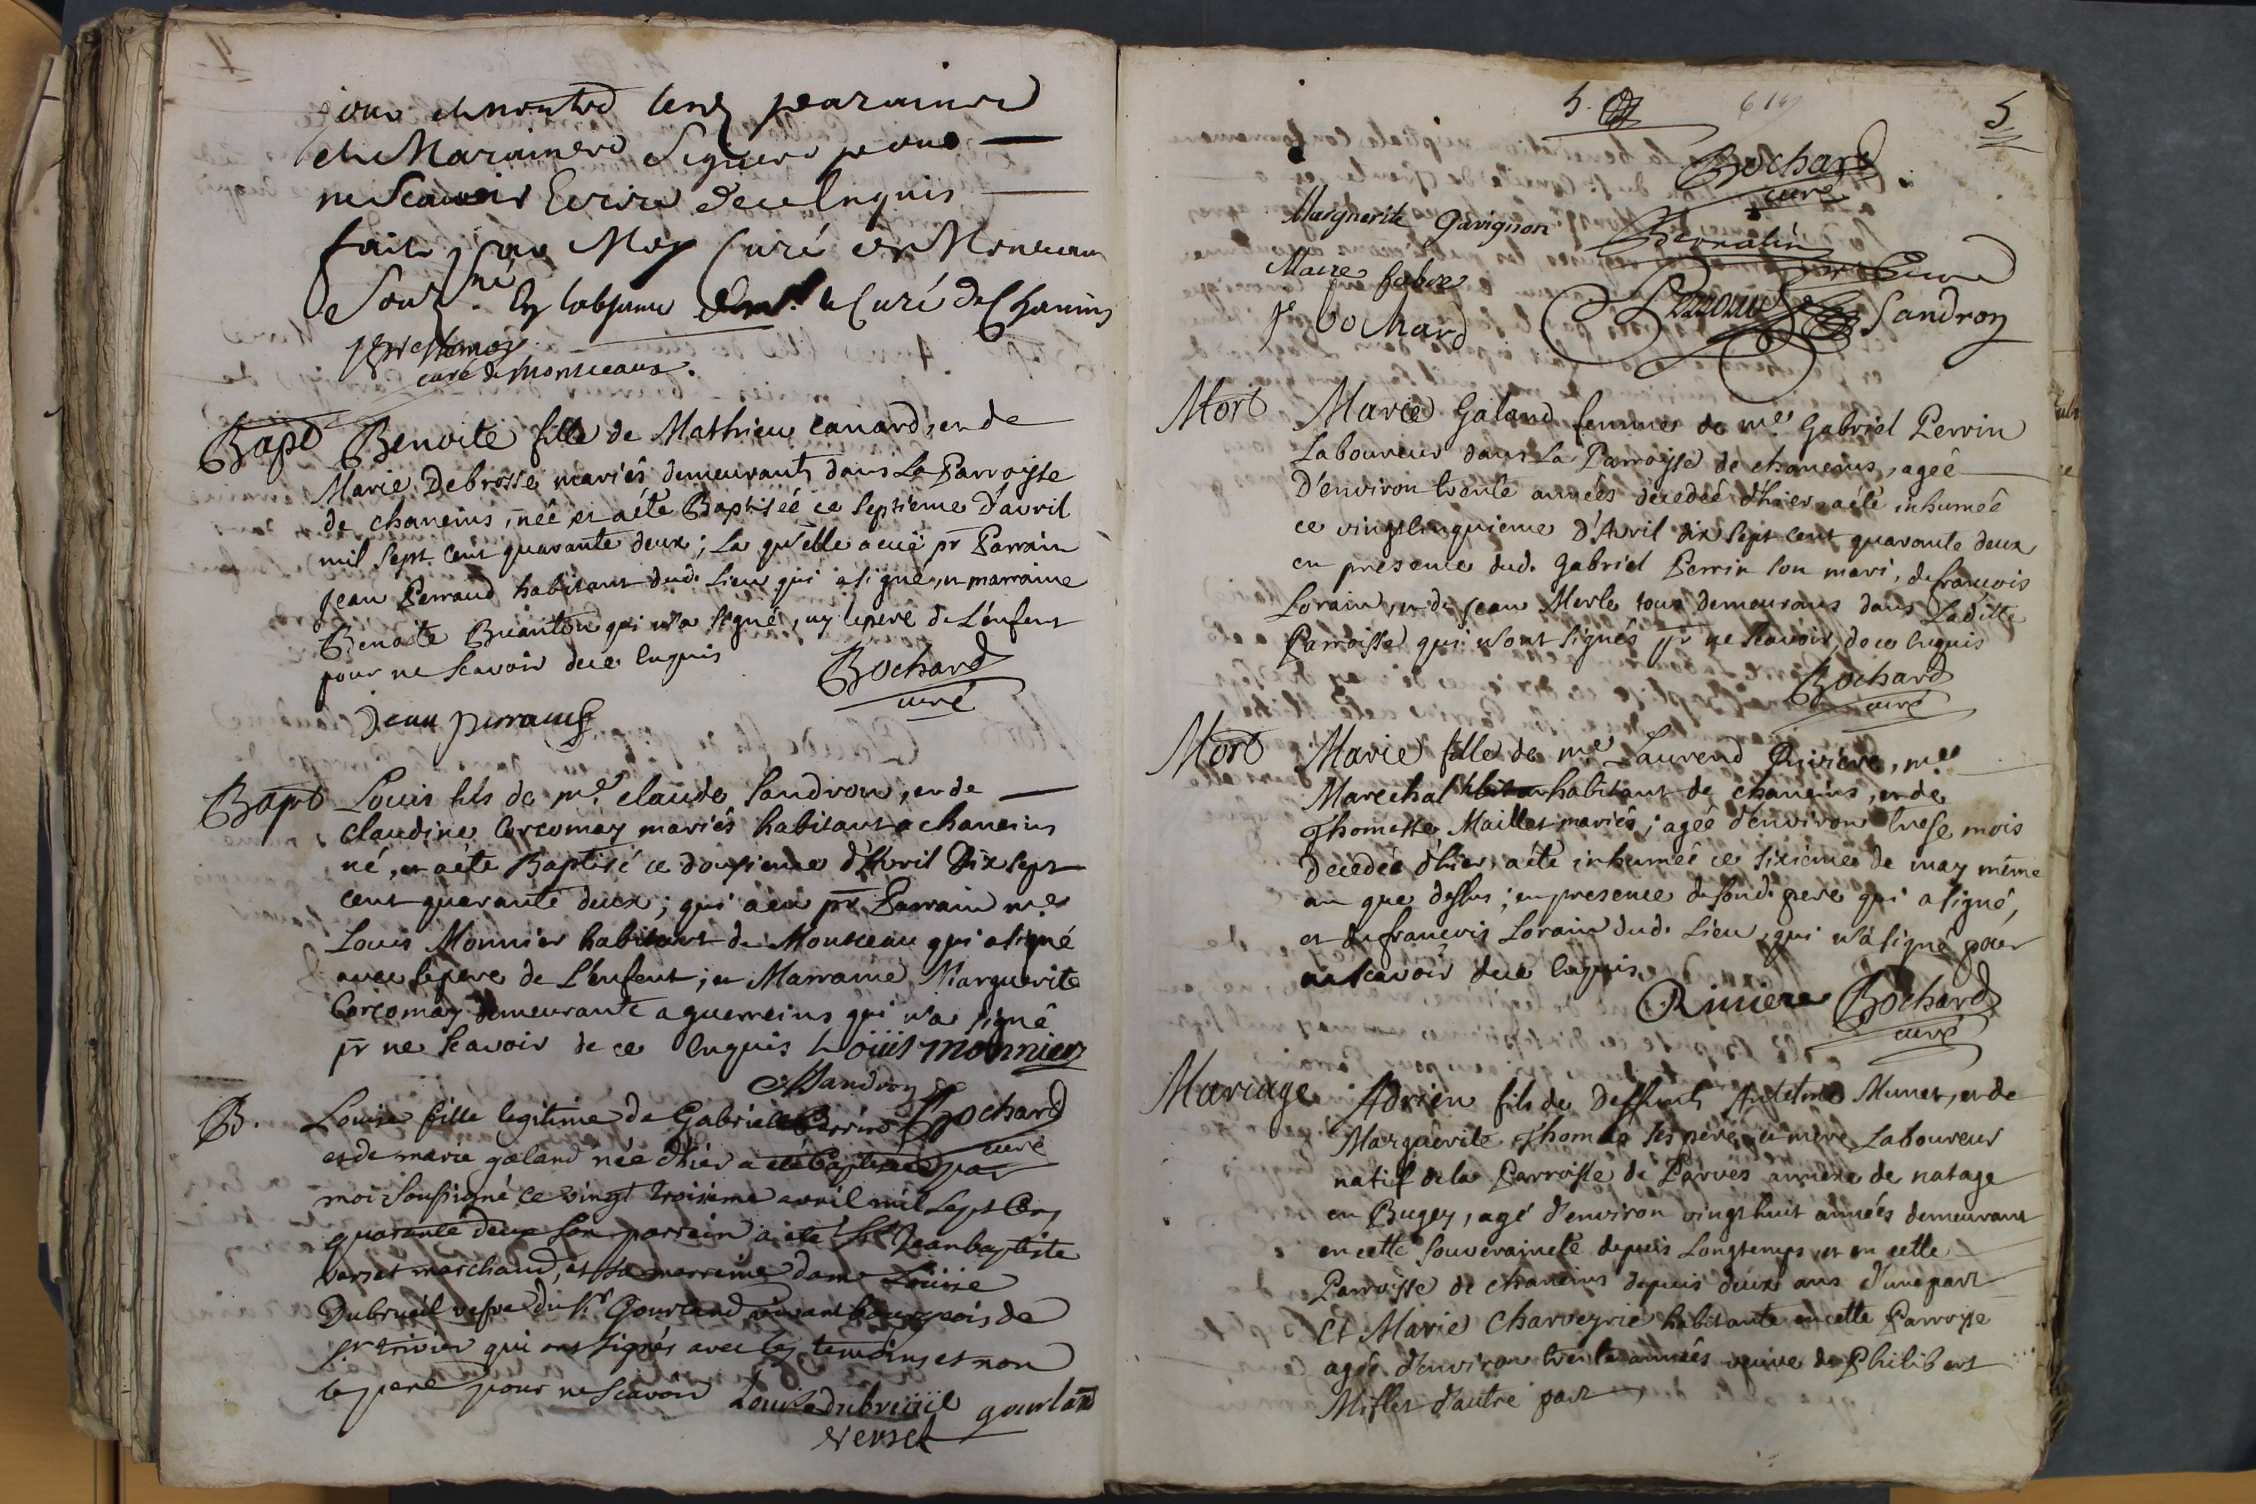 et Maraine Signer pour
ne Scavoir Ecrire dece Enquis
fait par Moy Curé de Monceaux
Souzné En labsence de mr. le Curé de Chaneins
curé de monsceaux.
Bapt Benoite fille de Mathieu canard, et de
Marie Debrosse mariés demeurants dans La Parroisse
de chaneins, née et aété Baptisée ce septieme d'avril
mil sept cent quarante deux; La qu'elle a eüe pr Parrain
Jean Perraud habitant dud. Lieu qui a signé, et marraine
Benoite Brianton qui n'a signé, ny le pere de L'enfent
pour ne scavoir dece enquis
Bochard
curé
Jean perraud
Bapt Louis fils de me. claude Sandron, et de
claudine Corcomay mariés habitant a chaneins
né, et aété Baptisé ce dousieme d'Avril Dix sept
cent quarante deux; qui a eu pr Parrain me
Louis Monnier habitant de Monteau qui a signé
avec le pere de L'enfent; et Marraine Marguerite
Corcomay demeurante a guerreins qui n'a signé
pr ne scavoir de ce enquis Loüis monnier
Sandron
Bochard
curé
B. Louise fille legitime de Gabriel Perrin
et de marie galand née d'hier a eté baptisée par
moi soussigné ce vingt troisieme avril mil sept Cent
quarante deux son parrein a eté Sr Jean baptiste
verset marchand, et sa marreine dame Loüise
Dubrueil vefve du Sr Gourland vivant bourgeois de
St trivier qui ont signés avec les temoins et non
le pere pour ne scavoir Louise dubrüeil gourland
Verset
5. 5
Bochard
curé
Marguerite Gavignon
Marie fabre
Jr bochard
Sandron
Mort Marie Galand femme de me. Gabriel Perrin
Laboureur dans La Parroisse de chaneins, ageé
D'environ trente années decedeé d'hier aété inhumeé
ce vingtcinquieme d'Avril dix sept cent quarante deux
en presence dud. Gabriel Perrin son mari, de francois
Lorain, et de Jean Merle tous demeurans dans Laditte
Parroisse qui n'ont signés pr ne scavoir, de ce enquis
Bochard
curé
Mort Marie fille de me Laurend Riviere, me
Marechal habitant de chaneins, et de
Thomasse Maillet mariés; ageé d'environ trese mois
Decedée d'hier, aété inhumeé ce sixieme de may même
an que dessus; en presence de sond. pere qui a signé,
et de francois Lorain dud. Lieu, qui n'a signé pour
ne scavoir dece enquis
Riviere Bochard
curé
Mariage Adrien fils de Deffunts Antelme Munet, et de
Marguerite Thomas ses pere et mere Laboureur
natif de la Parroisse de Parves annexe de natage
en Bugey, agé d'environ vingt huit années demeurant
en cette Souveraineté depuis Longtemps, et en cette
Parroisse de chaneins depuis deux ans d'une part
Et Marie Charveyrie habitante en cette Parroisse
agée d'environ trente années veuve de Philibert
Mifflet d'autre part